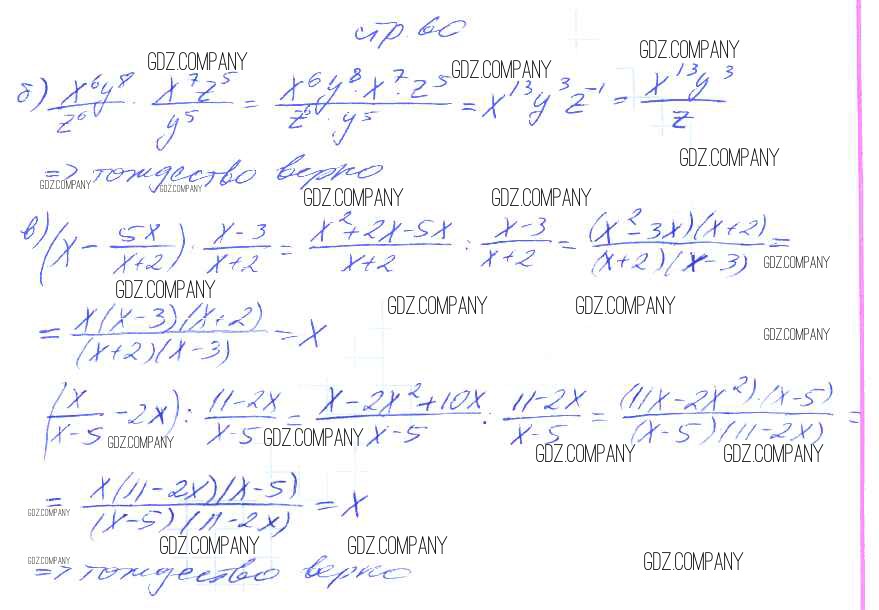 стр. 60
GDZ.COMPANY GDZ.COMPANY GDZ.COMPANY
б) x⁶y⁸/z⁶ · x⁷z⁵/y⁵ = x⁶y⁸·x⁷·z⁵/z⁶·y⁵ = x¹³y³z⁻¹ = x¹³y³/z
=> тождество верно
GDZ.COMPANY GDZ.COMPANY GDZ.COMPANY GDZ.COMPANY GDZ.COMPANY
в) (x − 5x/x+2) · x−3/x+2 = x²+2x−5x/x+2 : x−3/x+2 = (x²−3x)(x+2)/(x+2)(x−3) =
GDZ.COMPANY
GDZ.COMPANY GDZ.COMPANY GDZ.COMPANY
= x(x−3)(x+2)/(x+2)(x−3) = x
GDZ.COMPANY
(x/x−5 − 2x) : 11−2x/x−5 = x−2x²+10x/x−5 : 11−2x/x−5 = (11x−2x²)·(x−5)/(x−5)(11−2x) =
GDZ.COMPANY GDZ.COMPANY GDZ.COMPANY GDZ.COMPANY
= x(11−2x)(x−5)/(x−5)(11−2x) = x
GDZ.COMPANY
GDZ.COMPANY GDZ.COMPANY
=> тождество верно
GDZ.COMPANY GDZ.COMPANY